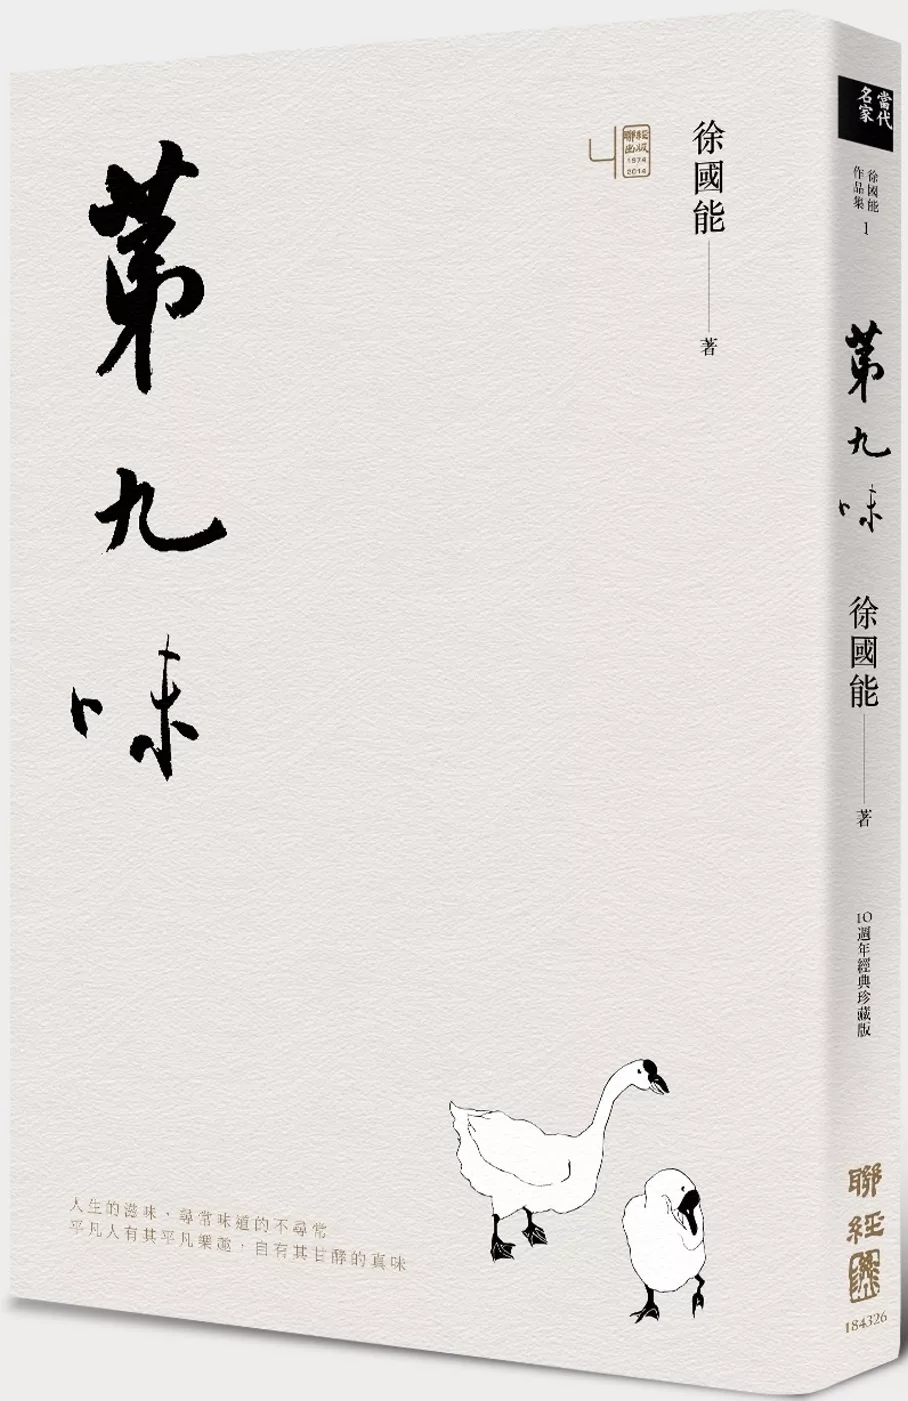 徐國能
著
聯經
出版
1974
2014
第九味
人生的滋味,尋常味道的不尋常
平凡人有其平凡樂趣,自有其甘醇的真味
當代
名家
徐國能
作品集 1
第九味
徐國能
著
10週年經典珍藏版
聯經
184326